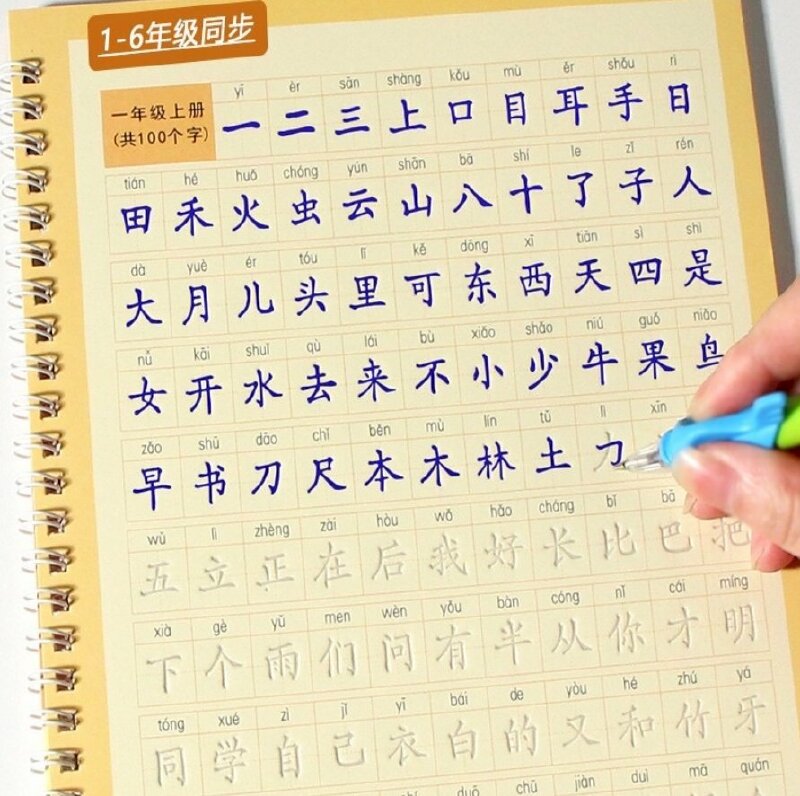 1-6年级同步
yī èr sān shàng kǒu mù ěr shǒu rì
一年级上册
(共100个字)
一 二 三 上 口 目 耳 手 日
tián hé huǒ chóng yún shān bā shí le zǐ rén
田 禾 火 虫 云 山 八 十 了 子 人
dà yuè ér tóu lǐ kě dōng xī tiān sì shì
大 月 儿 头 里 可 东 西 天 四 是
nǚ kāi shuǐ qù lái bù xiǎo shǎo niú guǒ niǎo
女 开 水 去 来 不 小 少 牛 果 鸟
zǎo shū dāo chǐ běn mù lín tǔ lì xīn
早 书 刀 尺 本 木 林 土 力
wǔ lì zhèng zài hòu wǒ hǎo cháng bǐ bā
五 立 正 在 后 我 好 长 比 巴 把
xià gè yǔ men wèn yǒu bàn cóng nǐ cái míng
下 个 雨 们 问 有 半 从 你 才 明
tóng xué zì jǐ yī bái de yòu hé zhú yá
同 学 自 己 衣 白 的 又 和 竹 牙
chū jiàn duì mā quán